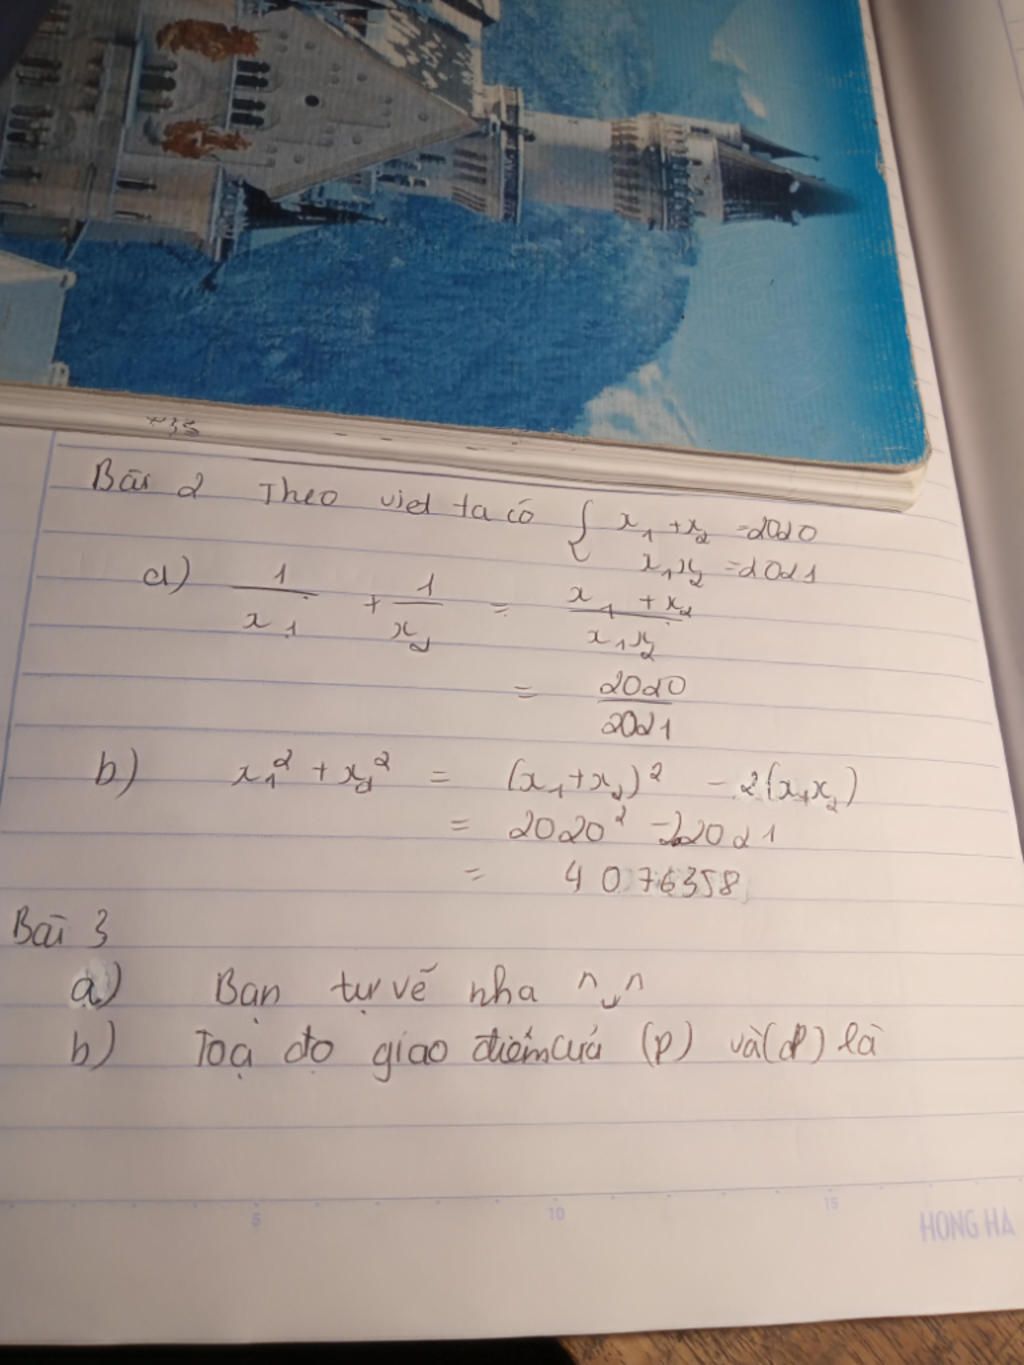 Bài 2 Theo viet ta có { x₁ + x₂ = 2020
x₁x₂ = 2021
a) 1/x₁ + 1/x₂ = (x₁ + x₂)/(x₁x₂)
= 2020/2021
b) x₁² + x₂² = (x₁+x₂)² - 2(x₁x₂)
= 2020² - 2.2021
= 4076358
Bài 3
a) Bạn tự vẽ nha ^‿^
b) Toạ độ giao điểm cuả (P) và (d) là
5 10 15
HONG HA